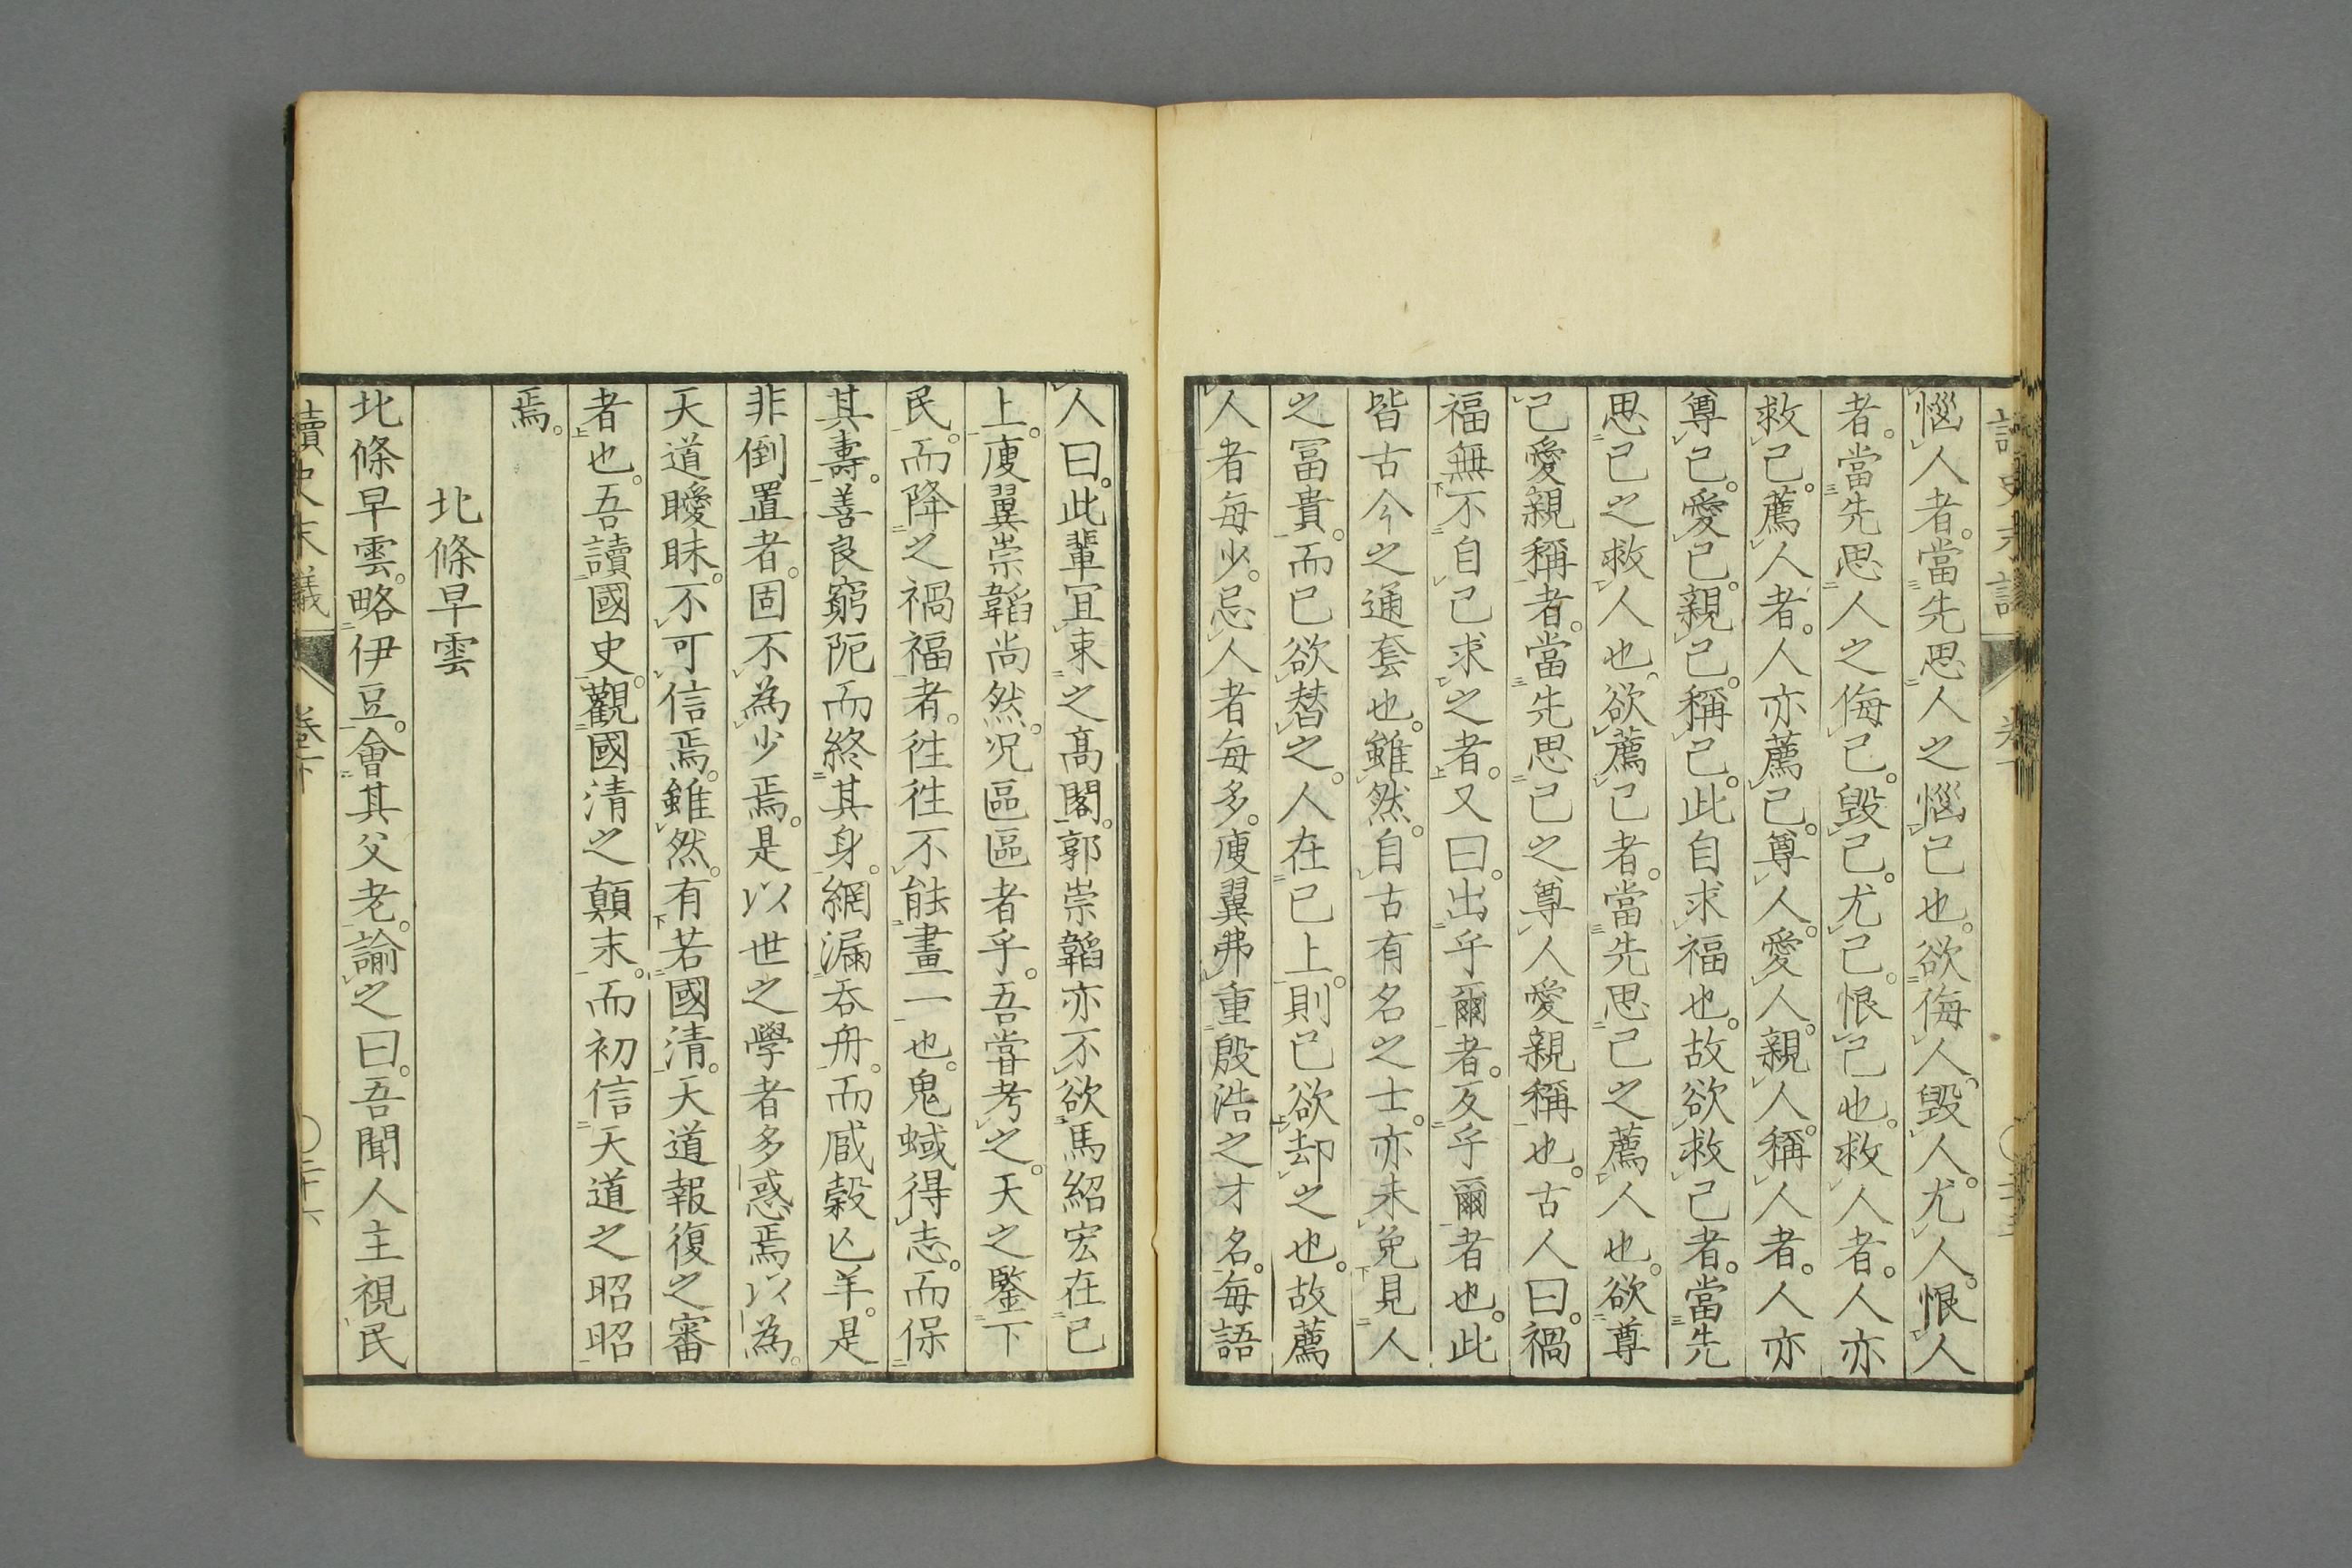 惱人者。當先思人之惱己也。欲侮人。毀人。尤人。恨人
者。當先思人之侮己。毀己。尤己。恨己也。救人者。人亦
救己。薦人者。人亦薦己。尊人。愛人。親人。稱人者。人亦
尊己。愛己。親己。稱己。此自求福也。故欲救己者。當先
思己之救人也。欲薦己者。當先思己之薦人也。欲尊
己愛親稱者。當先思己之尊人愛親稱也。古人曰。禍
福無不自己求之者。又曰。出乎爾者。反乎爾者也。此
皆古今之通套也。雖然。自古有名之士。亦未免見人
之冨貴。而已欲替之。人在己上。則已欲却之也。故薦
人者每少。忌人者每多。庾翼弗重殷浩之才名。每語
人曰。此輩宜束之髙閣。郭崇韜亦不欲馬紹宏在己
上。庾翼崇韜尚然。况區區者乎。吾嘗考之。天之鑒下
民。而降之禍福者。徃徃不能畫一也。鬼蜮得志。而保
其壽。善良窮阨而終其身。網漏吞舟。而臧穀亾羊。是
非倒置者。固不為少焉。是以世之學者多惑焉以為。
天道曖昧。不可信焉。雖然。有若國清。天道報復之審
者也。吾讀國史。觀國清之顛末。而初信天道之昭昭
焉。
北條早雲
北條早雲。略伊豆。會其父老。諭之曰。吾聞人主視民
讀史末議 卷下 〇二十六